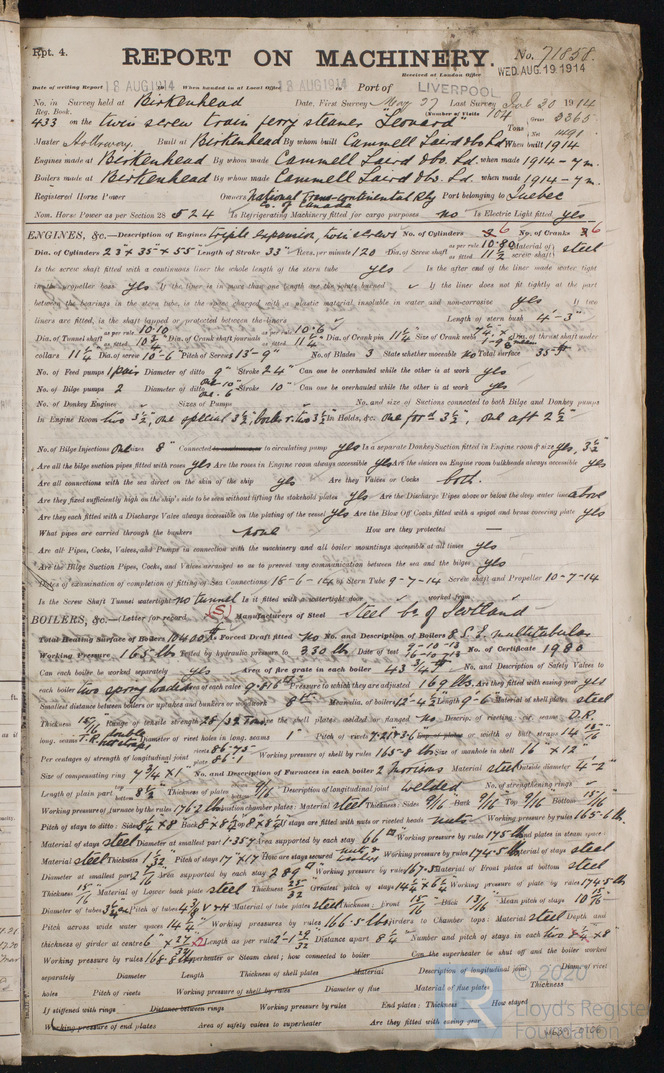 Rpt. 4.
REPORT ON MACHINERY.
No. 71858.
Received at London Office
WED. AUG. 19 1914
Date of writing Report 18 AUG 1914 When handed in at Local Office 18 AUG 1914 Port of LIVERPOOL
No. in Survey held at Birkenhead Date, First Survey May 27 Last Survey 30 1914
Reg. Book. (Number of Visits 104
433 on the twin screw train ferry steamer "Leonard" Tons Gross 3365 Net 1491
Master Holloway. Built at Birkenhead By whom built Cammell Laird & Co. Ld. When built 1914
Engines made at Birkenhead By whom made Cammell Laird & Co. Ld. when made 1914 - 7m.
Boilers made at Birkenhead By whom made Cammell Laird & Co. Ld. when made 1914 - 7m.
Registered Horse Power Owners National Trans-continental Rly Co. of Canada Port belonging to Quebec
Nom. Horse Power as per Section 28 524 Is Refrigerating Machinery fitted for cargo purposes no Is Electric Light fitted yes
ENGINES, &c.—Description of Engines triple expansion, twin screws No. of Cylinders 6 No. of Cranks 6
Dia. of Cylinders 23" x 35" x 55" Length of Stroke 33" Revs. per minute 120 Dia. of Screw shaft as per rule 10.80 as fitted 11 1/2 Material of screw shaft steel
Is the screw shaft fitted with a continuous liner the whole length of the stern tube yes Is the after end of the liner made water tight
in the propeller boss yes If the liner is in more than one length are the joints burned If the liner does not fit tightly at the part
between the bearings in the stern tube, is the space charged with a plastic material insoluble in water and non-corrosive yes If two
liners are fitted, is the shaft lapped or protected between the liners Length of stern bush 4'-3"
Dia. of Tunnel shaft as per rule 10.10 as fitted Dia. of Crank shaft journals as per rule 10.6 as fitted 11 1/4 Dia. of Crank pin 11 1/4 Size of Crank webs Dia. of thrust shaft under
collars 11 1/4 Dia. of screw 10'-6" Pitch of Screw 13'-9" No. of Blades 3 State whether moveable no Total surface 35
No. of Feed pumps 1 pair Diameter of ditto 9" Stroke 24" Can one be overhauled while the other is at work yes
No. of Bilge pumps 2 Diameter of ditto Stroke 10" Can one be overhauled while the other is at work yes
No. of Donkey Engines Sizes of Pumps No. and size of Suctions connected to both Bilge and Donkey pumps
In Engine Room two 3 1/2", one special 3 1/2", boiler r. two 3 1/2" In Holds, &c. one for'd 3 1/2", one aft 2 1/2"
No. of Bilge Injections one sizes 8" Connected to circulating pump yes Is a separate Donkey Suction fitted in Engine room & size yes, 3 1/2
Are all the bilge suction pipes fitted with roses yes Are the roses in Engine room always accessible yes Are the sluices on Engine room bulkheads always accessible yes
Are all connections with the sea direct on the skin of the ship yes Are they Valves or Cocks both.
Are they fixed sufficiently high on the ship's side to be seen without lifting the stokehold plates yes Are the Discharge Pipes above or below the deep water line above
Are they each fitted with a Discharge Valve always accessible on the plating of the vessel yes Are the Blow Off Cocks fitted with a spigot and brass covering plate yes
What pipes are carried through the bunkers none How are they protected —
Are all Pipes, Cocks, Valves, and Pumps in connection with the machinery and all boiler mountings accessible at all times yes
Are the Bilge Suction Pipes, Cocks, and Valves arranged so as to prevent any communication between the sea and the bilges yes
Dates of examination of completion of fitting of Sea Connections 18-6-14 of Stern Tube 9-7-14 Screw shaft and Propeller 10-7-14
Is the Screw Shaft Tunnel watertight no tunnel Is it fitted with a watertight door worked from
BOILERS, &c.—(Letter for record (S) Manufacturers of Steel Steel Co. of Scotland
Total Heating Surface of Boilers 10400 Is Forced Draft fitted No No. and Description of Boilers 8 S.E. multitubular
Working Pressure 165 lbs Tested by hydraulic pressure to 330 lbs Date of test No. of Certificate 1980
Can each boiler be worked separately yes Area of fire grate in each boiler 43 3/4 No. and Description of Safety Valves to
each boiler two spring loaded Area of each valve 9.816 Pressure to which they are adjusted 169 lbs. Are they fitted with easing gear yes
Smallest distance between boilers or uptakes and bunkers or woodwork 8" Mean dia. of boilers 12'-4 1/2" Length 9'-6" Material of shell plates steel
Thickness 15/16 Range of tensile strength 28/32 Tons Are the shell plates welded or flanged no Descrip. of riveting: cir. seams D.R.
long. seams T.R. double butt straps Diameter of rivet holes in long. seams 1" Pitch of rivets 7.21875 Lap of plates or width of butt straps 14 15/16
Per centages of strength of longitudinal joint rivets 86.73 plate 86.1 Working pressure of shell by rules 165.8 lbs Size of manhole in shell 16" x 12"
Size of compensating ring 7 3/4 x 1" No. and Description of Furnaces in each boiler 2 Morisons Material steel Outside diameter 4'-2"
Length of plain part top 8 1/2 bottom Thickness of plates 9/16 Description of longitudinal joint welded No. of strengthening rings
Working pressure of furnace by the rules 176.2 lbs Combustion chamber plates: Material steel Thickness: Sides 9/16 Back 9/16 Top 9/16 Bottom 15/16
Pitch of stays to ditto: Sides 8 1/4 x 8 Back 8 x 8 1/2 Top 8 x 8 1/4 If stays are fitted with nuts or riveted heads nuts Working pressure by rules 165.6 lb.
Material of stays steel Diameter at smallest part 1.357 Area supported by each stay 66 Working pressure by rules 175 lb End plates in steam space:
Material steel Thickness 1 1/32 Pitch of stays 17" x 17" How are stays secured Working pressure by rules 174.5 lb Material of stays steel
Diameter at smallest part 2 7/16 Area supported by each stay 289 Working pressure by rules 167.3 Material of Front plates at bottom steel
Thickness 15/16 Material of Lower back plate steel Thickness 25/32 Greatest pitch of stays Working pressure of plate by rules 174.5 lb
Diameter of tubes 3 1/2 Pitch of tubes Material of tube plates steel Thickness: Front 15/16 Back 13/16 Mean pitch of stays 10 15/16
Pitch across wide water spaces 14 1/4" Working pressures by rules 166.5 lb Girders to Chamber tops: Material steel Depth and
thickness of girder at centre 6" Length as per rule Distance apart 8 1/4 Number and pitch of stays in each two x 8"
Working pressure by rules 168.8 lb Superheater or Steam chest; how connected to boiler Can the superheater be shut off and the boiler worked
separately Diameter Length Thickness of shell plates Material Description of longitudinal joint Diam. of rivet
holes Pitch of rivets Working pressure of shell by rules Diameter of flue Material of flue plates Thickness
If stiffened with rings Distance between rings Working pressure by rules End plates: Thickness How stayed
Working pressure of end plates Area of safety valves to superheater Are they fitted with easing gear
© 2020
Lloyd's Register
Foundation